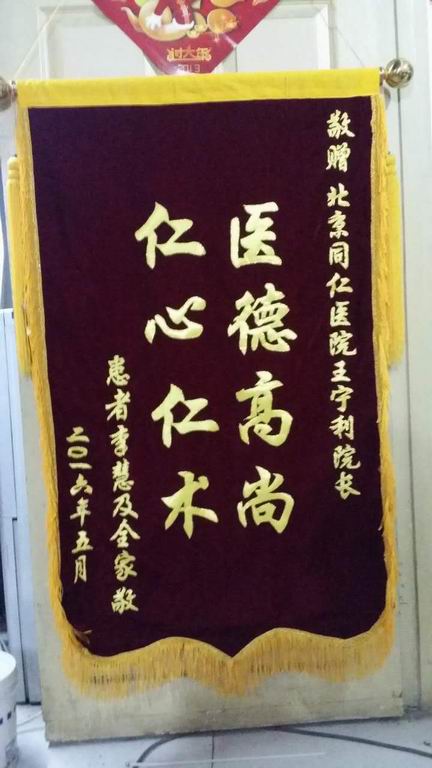 过大年
2013
敬赠 北京同仁医院王宁利院长
医德高尚
仁心仁术
患者李慧及全家敬
二〇一六年五月